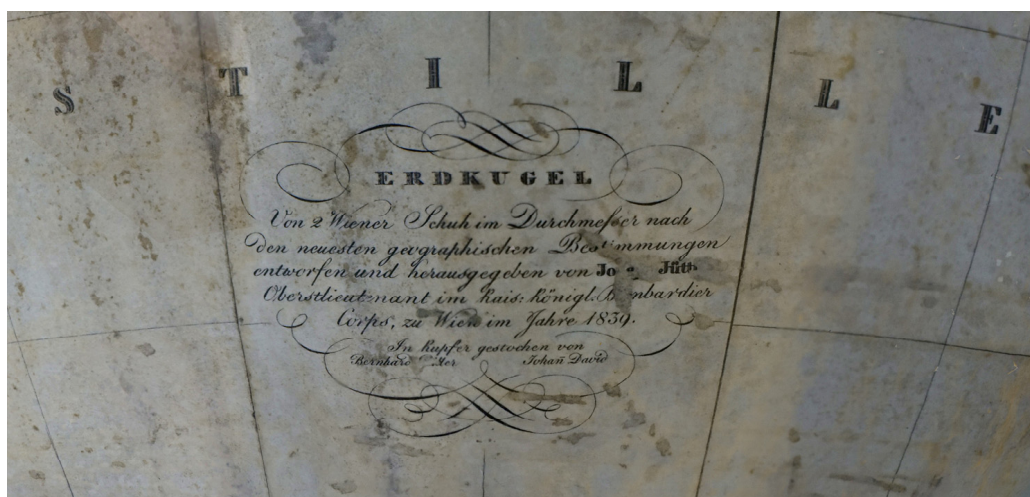 STILLE
ERDKUGEL
Von 2 Wiener Schuh im Durchmesser nach
den neuesten geographischen Bestimmungen
entworfen und herausgegeben von
Oberstlieutenant im kais: königl. Bombardier
Corps, zu Wien im Jahre 1839.
In Kupfer gestochen von
Bernhard Johañ David